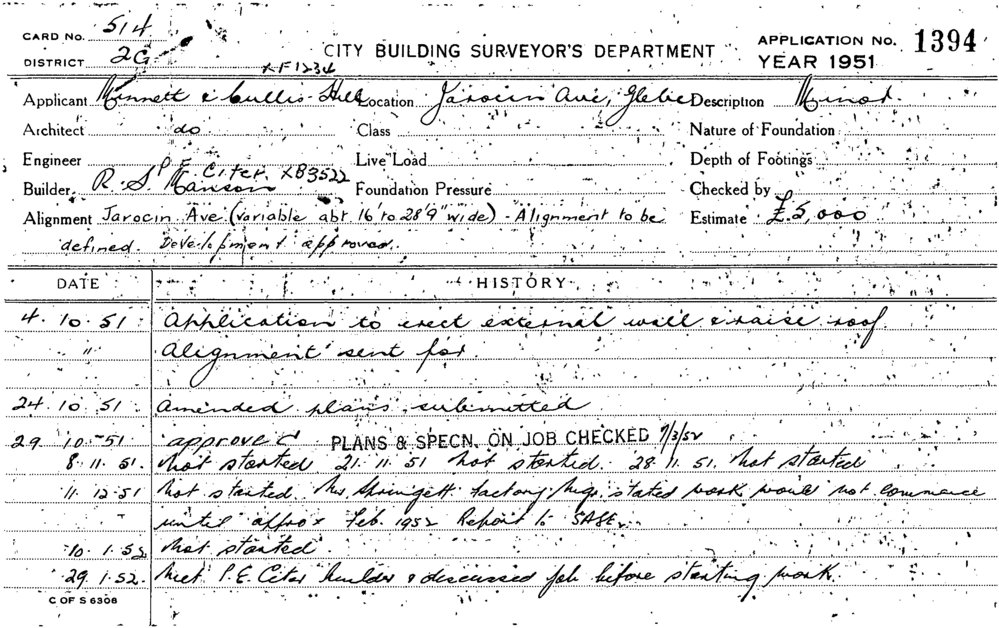 CARD No. 514
DISTRICT 2G
CITY BUILDING SURVEYOR'S DEPARTMENT
APPLICATION No. 1394
YEAR 1951
XF1234
Applicant Minnett & Cullis-Hill Location Jarocin Ave, Glebe Description Minor.
Architect do Class Nature of Foundation
Engineer Live Load Depth of Footings
P. E. Citer XB3522
Builder R. S. Manson Foundation Pressure Checked by
Alignment Jarocin Ave (variable abt 16' to 28'9" wide) - Alignment to be Estimate £5,000
defined. Development approved.
DATE HISTORY
4. 10. 51 Application to erect external wall & raise roof
" Alignment sent for
24. 10. 51 Amended plans submitted
29 10-51 approved PLANS & SPECN. ON JOB CHECKED 7/3/52
8. 11. 51. Not started 21. 11. 51 Not started. 28. 11. 51. Not started
11. 12. 51 Not started. Mr factory Mgr. stated work would not commence
until approx Feb. 1952 Report to
10. 1. 52 Not started.
29. 1. 52. Meet P.E. Citer builder & discussed job before starting work.
C OF S 6308